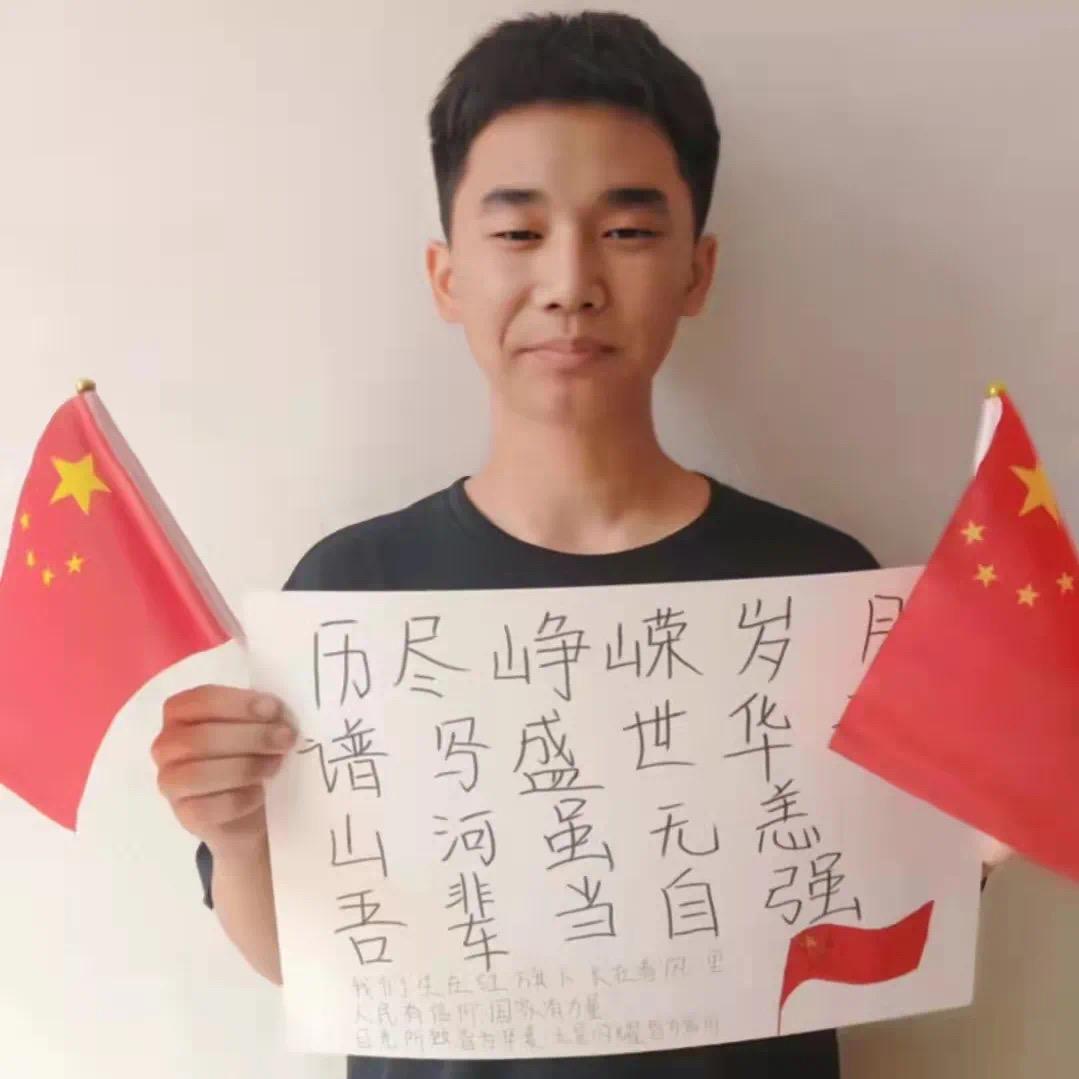 历尽峥嵘岁月
谱写盛世华
山河虽无恙
吾辈当自强
我们生在红旗下 长在春风里
人民有信仰 国家有力量
目光所致皆为华夏 五星闪耀皆为信仰